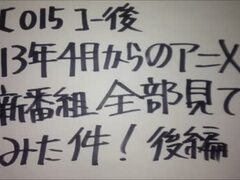 [015]-後
13年4月からのアニメ
新番組全部見て
みた件！後編